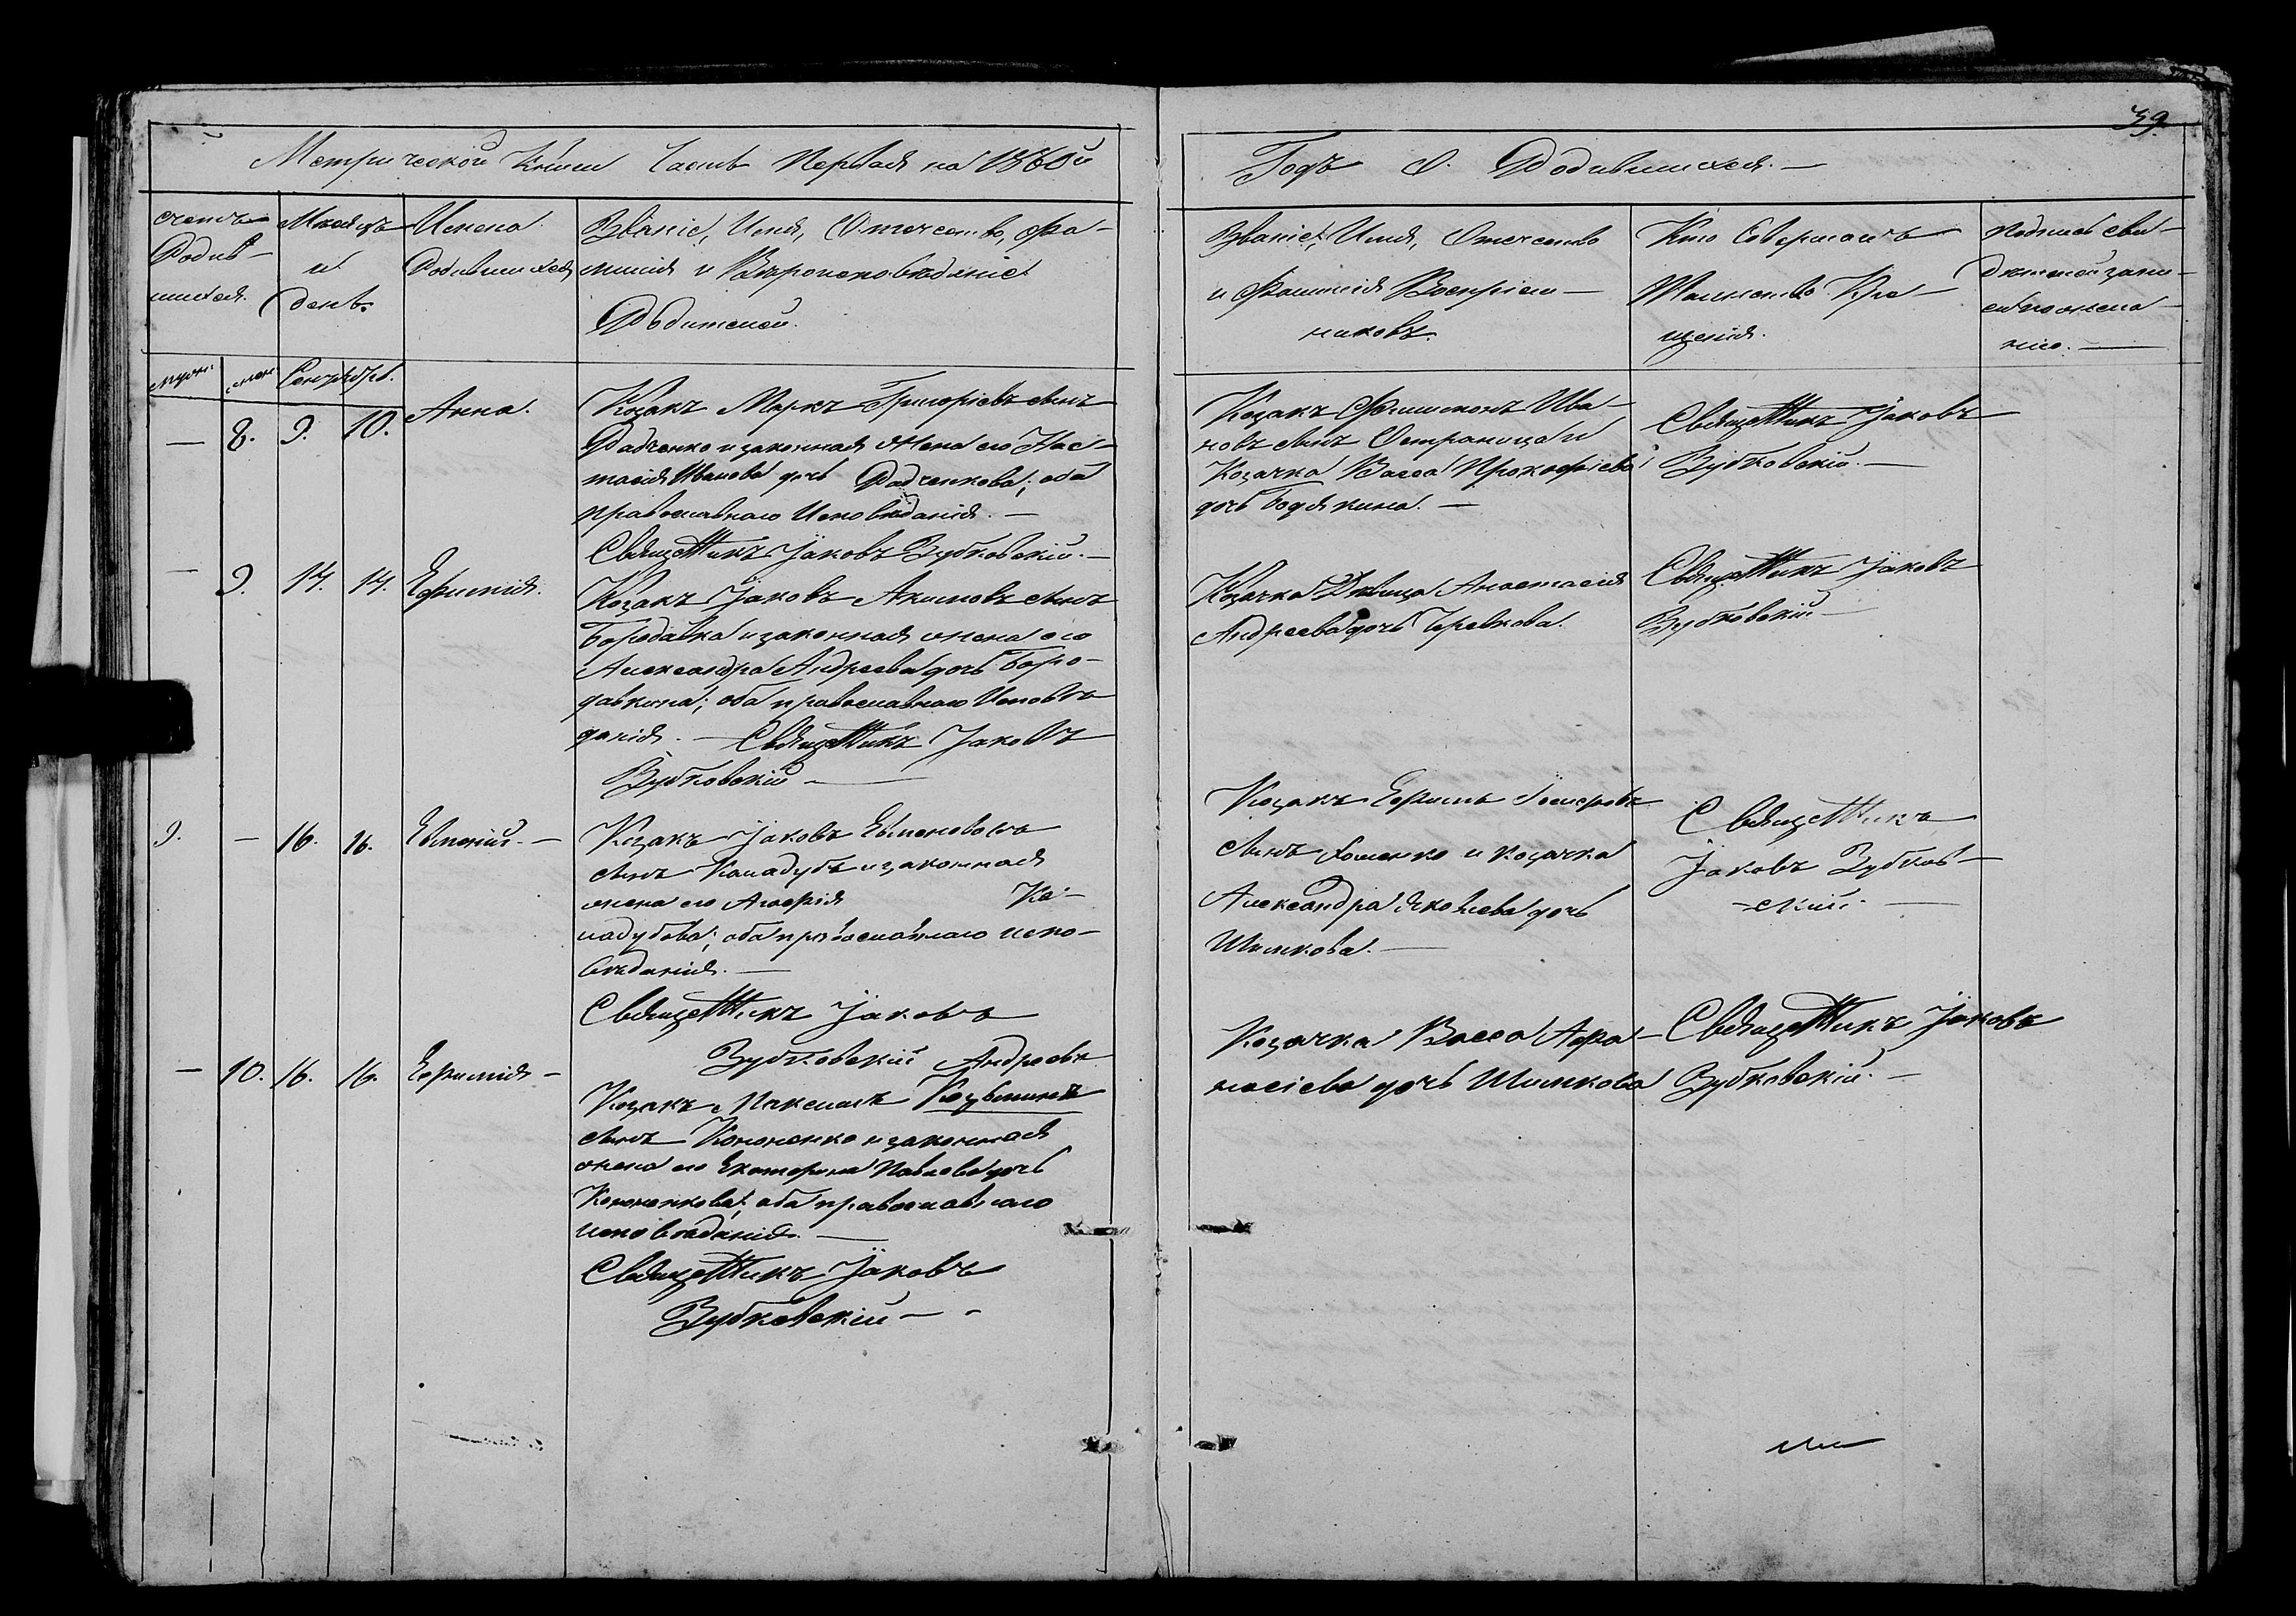 39.
Метрической Книги Часть Первая на 1860й
Годъ О Родившихся. —
счетъ Родив- шихся.
Мѣсяцъ и день.
Имена Родившихся
Званіе, Имя, Отечество, Фа-
милія и Вѣроисповѣданіе
Родителей.
Званіе, Имя, Отечество
и Фамилія Воспріем-
никовъ.
Кто Совершалъ
Таинство Кре-
щенія.
Подпись сви-
дѣтелей запи-
си по жела-
нію. —
муж. жен. Сентябрь.
— 8. 9. 10. Анна.
Козакъ Маркъ Григоріевъ сынъ
Радченко и законная жена его Нас-
тасія Иванова дочь Радченкова; оба
православнаго Исповѣданія. —
Священникъ Іаковъ Зубковскій. —
Козакъ Филимонъ Ива-
новъ сынъ Остраница и
Козачка Васса Прокофіева
дочь
Священникъ Іаковъ
Зубковскій. —
— 9. 14. 14. Евфимія.
Козакъ Іаковъ Акимовъ сынъ
Бородавка и законная жена его
Александра Андреева дочь Боро-
давкина; оба православнаго Исповѣ
данія. — Священникъ Іаковъ
Зубковскій —
Козачка Дѣвица Анастасія
Андреева дочь Черевкова.
Священникъ Іаковъ
Зубковскій —
9. — 16. 16. Евменій. —
Козакъ Іаковъ Евменовъ
сынъ Каладубъ и законная
жена его Агафія Ка-
ладубова; оба православнаго испо-
вѣданія. —
Священникъ Іаковъ
Зубковскій
Козакъ Ефимъ
сынъ Хоменко и козачка
Александра Яковлева дочь
Шимкова. —
Священникъ
Іаковъ Зубков-
скій. —
— 10. 16. 16. Евфимія —
Андреевъ
Козакъ Максимъ Козьминъ
сынъ Кононенко и законная
жена его Екатерина Павлова дочь
Кононенкова; оба православнаго
исповѣданія. —
Священникъ Іаковъ
Зубковскій —
Козачка Васса Афа-
насіева дочь Шимкова
Священникъ Іаковъ
Зубковскій. —